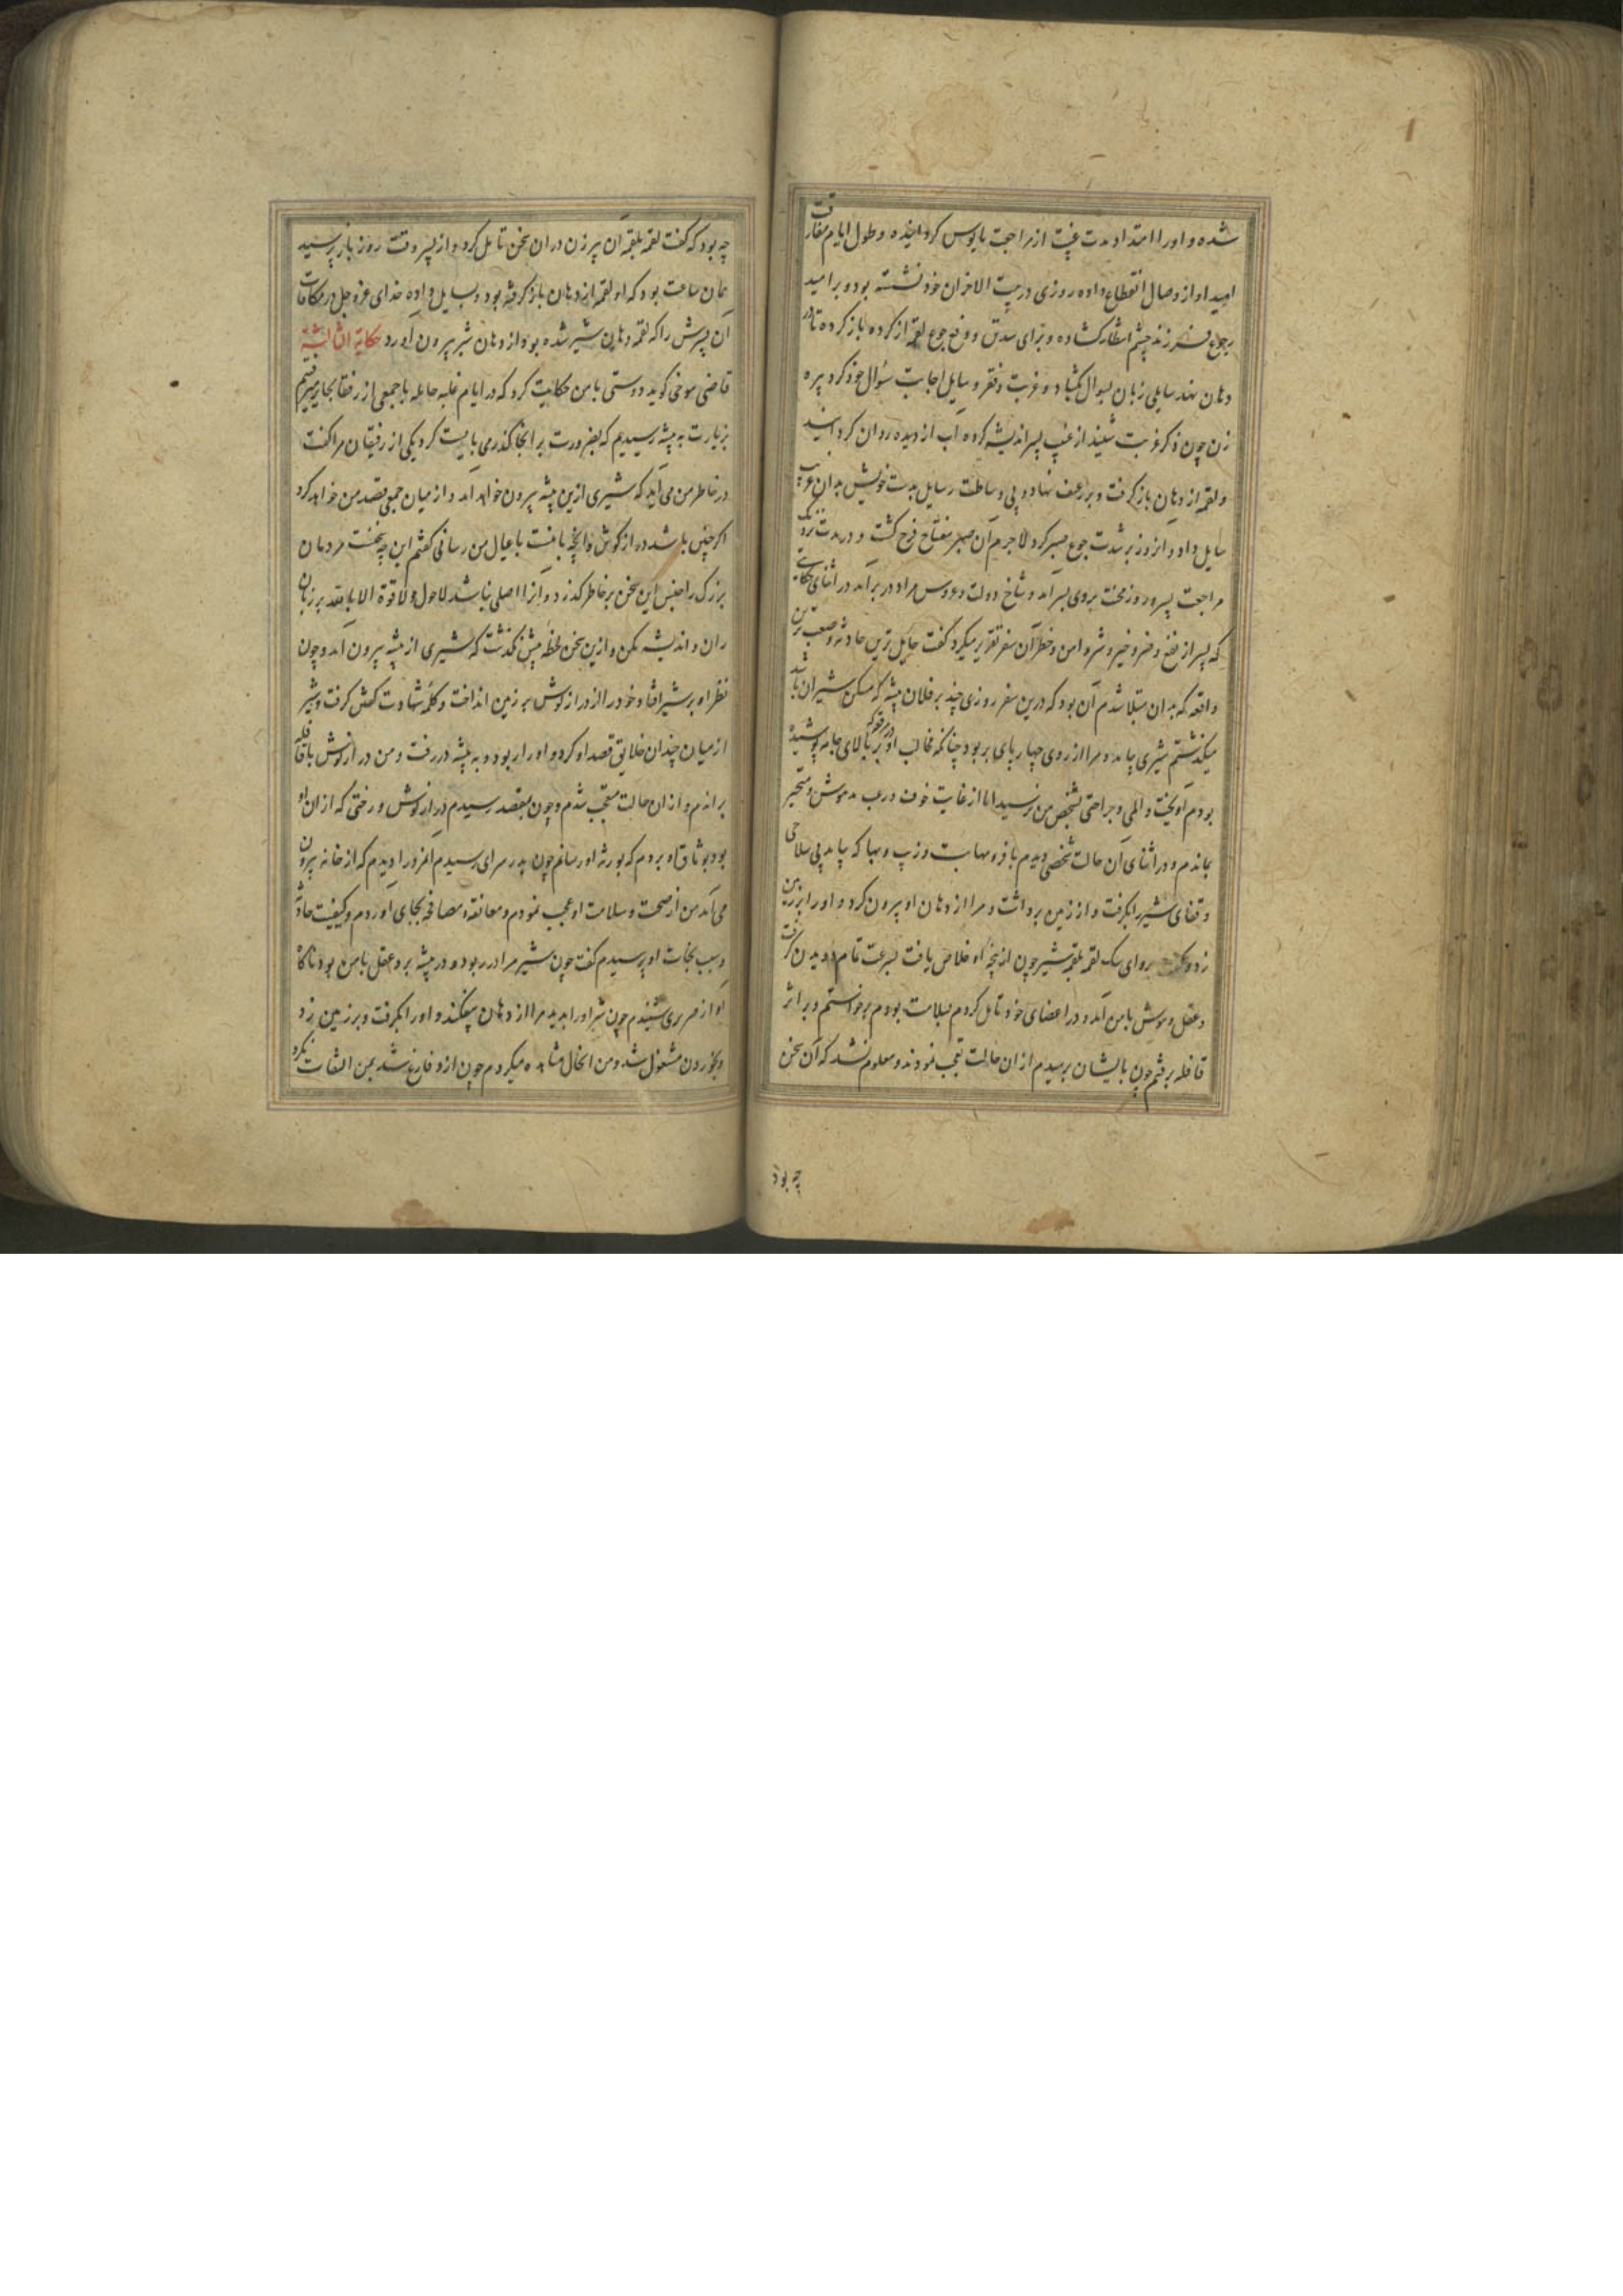 شده و او را امتداد مدت غیبت از مراجعت مایوس کردانیده و طول ایام مفارقت
امید او از وصال انقطاع داده روزی در بیت الاحزان خود نشسته بود و بر امید
رجوع فرزند چشم انتظار کشاده و برای سد رمق و دفع جوع لقمه از کرده باز کرده تا در
دهان نهد سایلی زبان بسوال بکشاد و غربت و فقر وسایل اجابت سؤال خود کرد پیره
زن چون ذکر غربت شنید از غیبت پسر اندیشه کرده آب از دیده روان کردانید
و لقمه از دهان باز کرفت و بر رغیف نهاد و بی وساطت رسایل بدست خویش بدان غریب
سایل داد و آنروز بر شدت جوع صبر کرد لاجرم آن صبر مفتاح فرح کشت و در مدت نزدیک
مراجعت پسر و روز بخت بروی بسر آمد و شاخ دولت و عروس مراد در بر آمد در اثنای حکایتی
که پسر از نفع و ضر و خیر و شر و امن و خطر آن سفر تقریر میکرد کفت هایل ترین حادثه و صعب ترین
واقعه که بدان مبتلا شدم آن بود که درین سفر روزی چند بر فلان بیشه که مسکن شیران باشد
میکذشتم شیری بیامد و مرا از روی چهارپای بربود چنانکه مخالب او در مرقعه که بر بالای جامه پوشیده
بودم آویخت و المی و جراحتی بشخص من نرسید اما از غایت خوف و رعب مدهوش و متحیر
بماندم و در اثنای آن حالت شخصی دیدم با فر و مهابت و زیب و بها که بیامد بی سلاحی
و قفای شیر را بکرفت و از زمین برداشت و مرا از دهان او بیرون کرد و او را بر زمین
زد و کفت برو ای سک لقمه بلقمه شیر چون از پنجه او خلاص یافت بسرعت تمام دویدن کرفت
و عقل و هوش بامن آمد و در اعضای خود تامل کردم بسلامت بودم برخواستم و بر اثر
قافله برفتم چون بایشان برسیدم از ان حالت تعجب نمودند و معلوم نشد که آن سخن
چه بود
چه بود که کفت لقمه بلقمه آن پیر زن در ان سخن تامل کرد و از پسر وقت روز باز پرسید
همان ساعت بود که او لقمه از دهان باز کرفته بود و بسایل داده خدای عز و جل در مکافات
آن پسرش را که لقمه دهان شیر شده بود از دهان شیر بیرون آورد حکایة الثالثة
قاضی موخی کوید دوستی بامن حکایت کرد که در ایام غلبه حنابله با جمعی از رفقا بحایر میرفتیم
بزیارت به بیشه رسیدیم که بضرورت بر انجا کذر می بایست کرد یکی از رفیقان مرا کفت
در خاطر من می آید که شیری ازین بیشه بیرون خواهد آمد و از میان جمع قصد من خواهد کرد
اکر چنین باشد دراز کوش و آنچه بامنست با عیال من رسانی کفتم این چه سخنست مردمان
بزرک را جنس این سخن بر خاطر کذرد و آنرا اصلی نباشد لاحول ولا قوة الا بالله بر زبان
ران و اندیشه مکن و ازین سخن لحظه بیش نکذشت که شیری از بیشه بیرون آمد و چون
نظر او بر شیر افتاد خود را از دراز کوش بر زمین انداخت و کلمه شهادت کفتن کرفت و شیر
از میان چندان خلایق قصد او کرد و او را بربود و به بیشه در رفت و من دراز کوش با قافله
براندم و از ان حالت متعجب شدم و چون بمقصد رسیدم دراز کوش و رختی که از ان او
بود بوثاق او بردم که بورثه او رسانم چون بدر سرای رسیدم آنمرد را دیدم که از خانه بیرون
می آمد من از صحت و سلامت او عجب نمودم و معانقه و مصافحه بجای آوردم و کیفیت حادثه
و سبب نجات او پرسیدم کفت چون شیر مرا در ربود و در بیشه برد عقل بامن بود ناکاه
آواز صریری شنیدم چون شیر او را بدید مرا از دهان بیفکند و او را بکرفت و بر زمین زد
و بخوردن مشغول شد و من آنحال مشاهده میکردم چون ازو فارغ شد بمن التفات نکرد